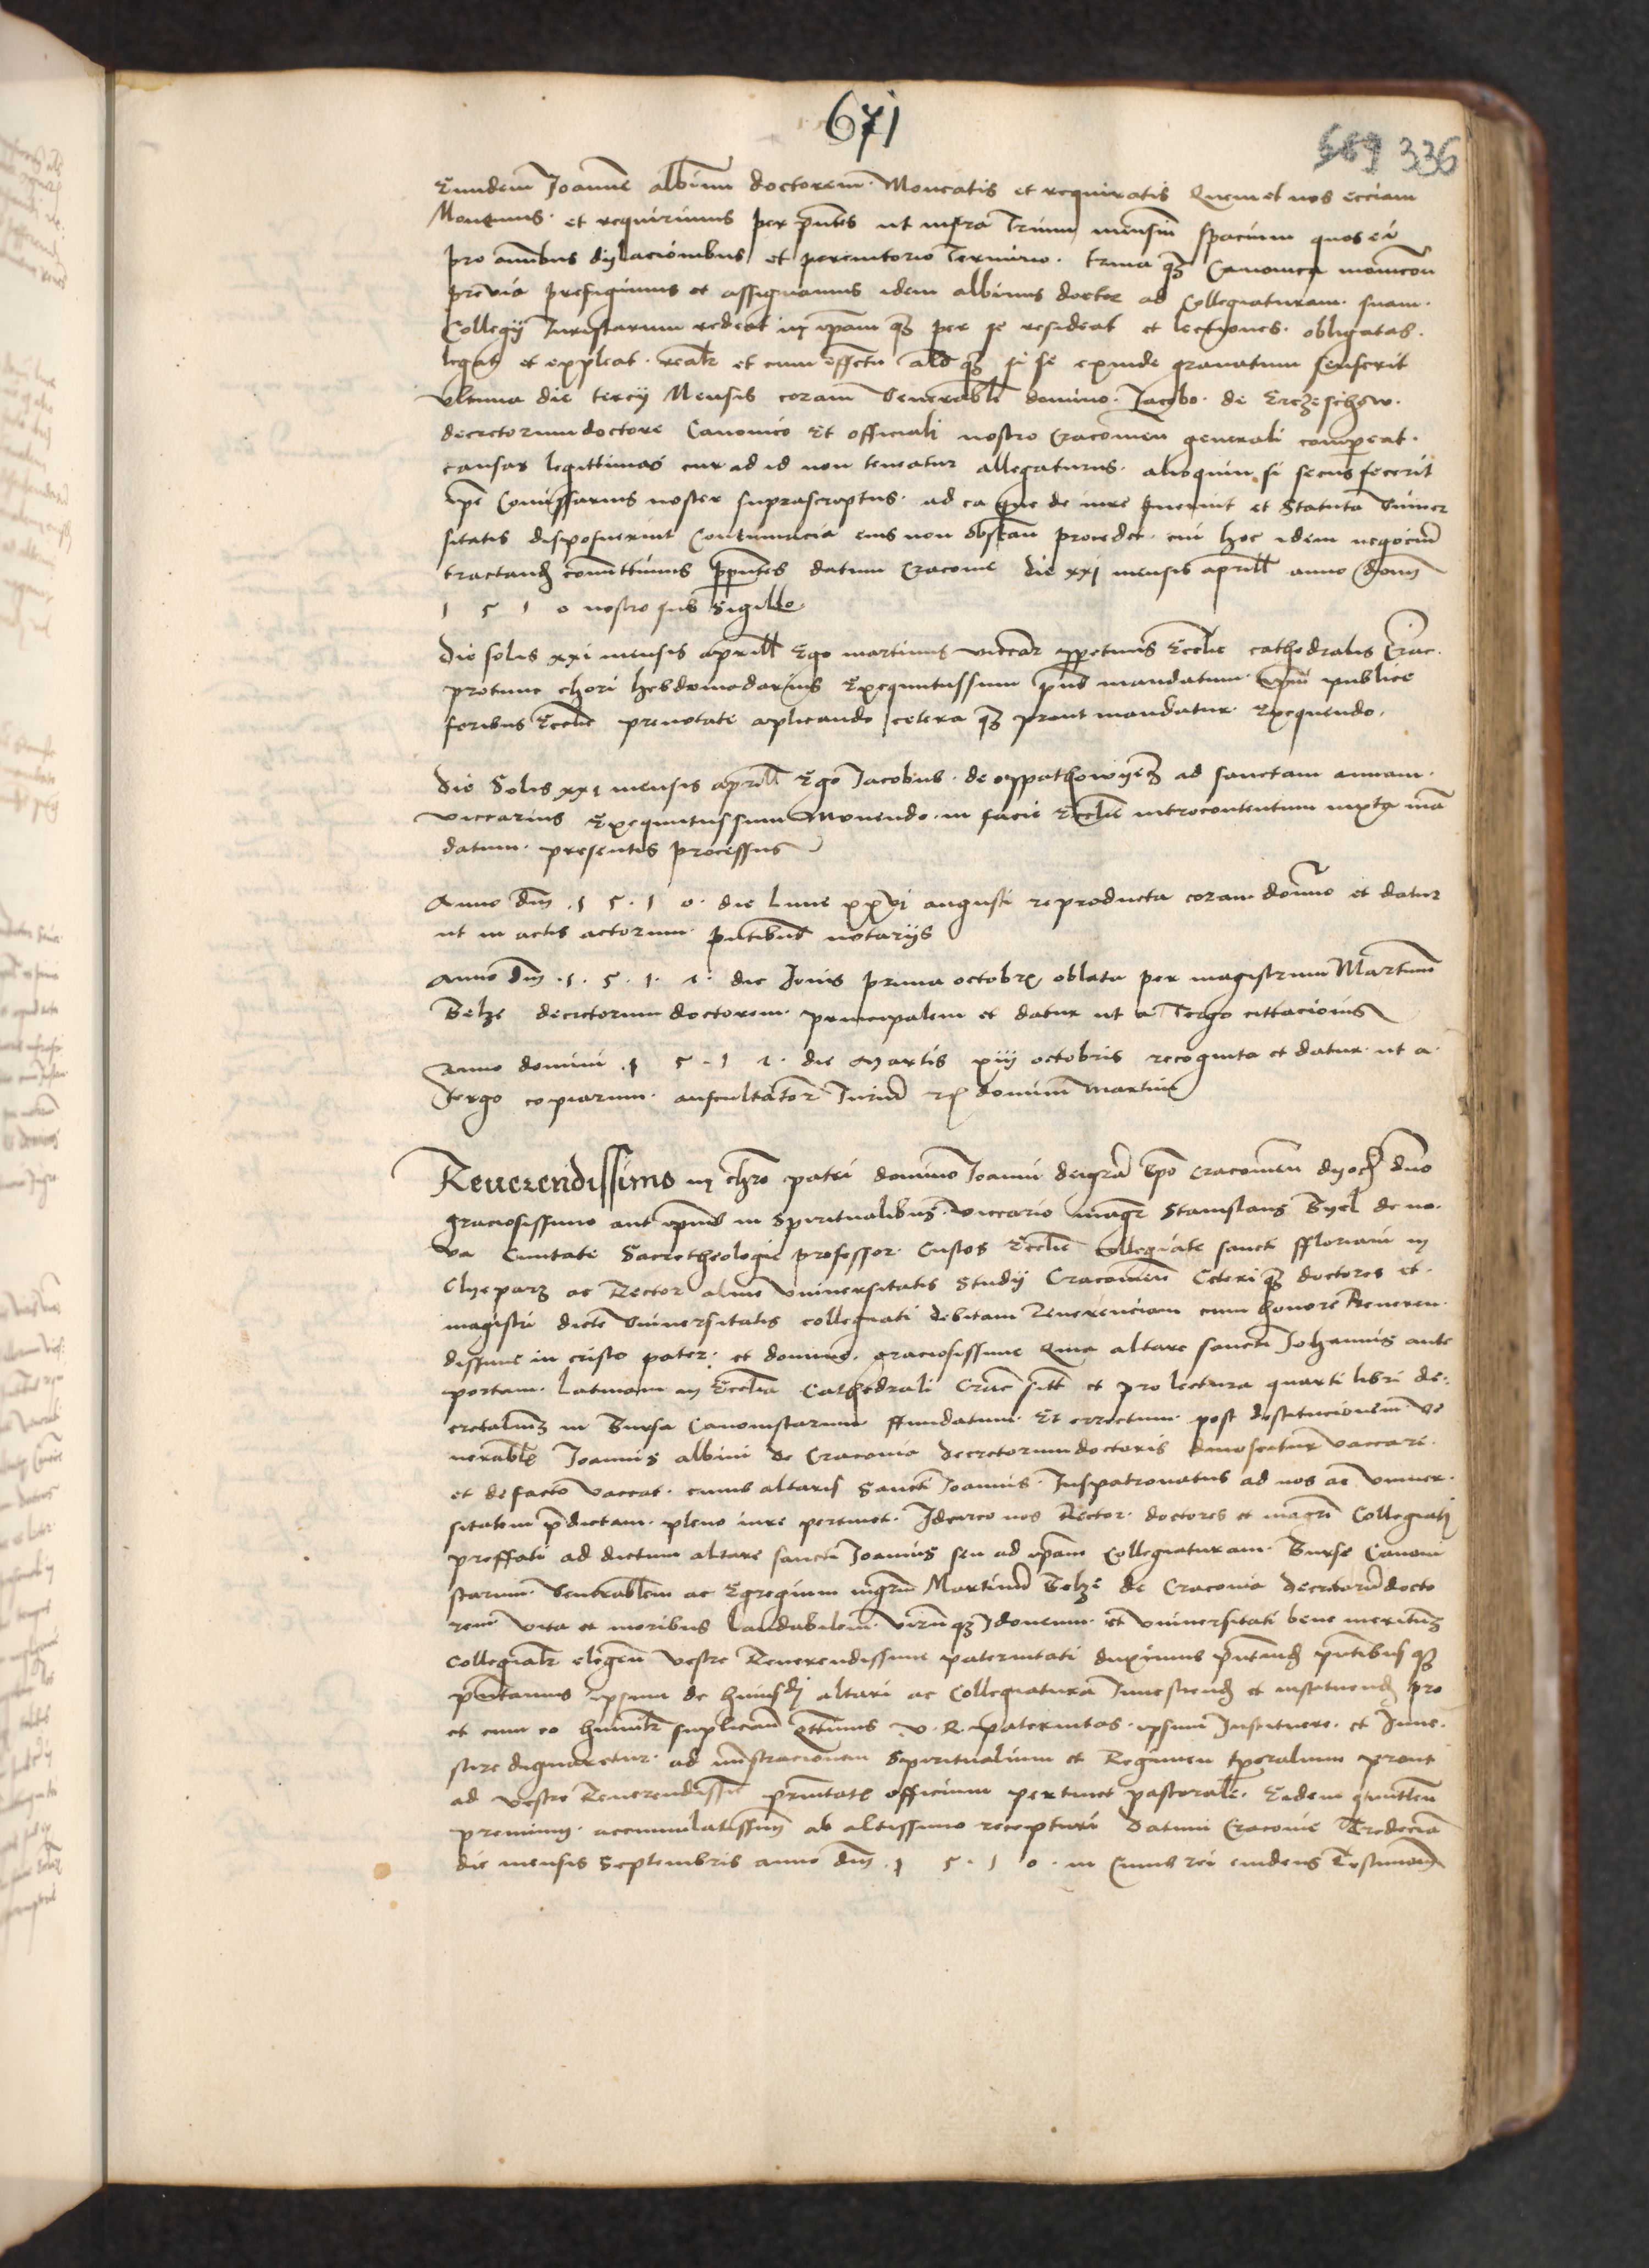 671
669 336
Eundem Joannē albinū doctorem Moneatis et requiratis Quem et nos ecciam
Monemus et requirimus per pñtes ut infra Trium mensiū spacium quos ei
pro omībus dylacionibus et peremtorio Termino trina qȝ Canonica monicōn
previa prefigimus et assignamus idem albinus doctor ad Collegiaturam suam
Collegij Juristarum redeat in ipam qȝ per se resideat et lectiones obligatas
legat et expleat realr et cum effectu alō qȝ si se exinde gravatum senserit
ultima die tercij Mensis coram Venerabli domino Jacobo de Erczeschow
decretorum doctore Canonico Et officiali nostro Cracovieñ generali compareat
causas legittimas cur ad id non teneatur allegaturus alioquin si secus fecerit
ipe Comissarius noster suprascriptus ad ea que de iure fuerint et Statuta Univer
sitatis disposuerint Contumacia eius non obstañ procedet cui hoc idem negociū
tractand comittimus p pñtes datum Cracovie die xxi mensis aprill anno domī
1 5 1 0 nostro sub Sigillo
die solis xxi mensis aprill Ego martinus viccar ppetuus Ecclie cathedralis Crac
protunc chori hebdomadarius Exequutussum pñs mandatum publice
foribus Ecclie prenotate aplicando cetera qȝ prout mandatur Exequendo
die Solis xxi mensis aprill Ego Jacobus de ad sanctam annam
viccarius Exequutussum Monendo in facie Ecclie introcontentum iuxta mā
datum presentis processus
Anno dnī 1 5 1 0 die lune xxvi augusti reproducta coram domino et datur
ut in actis actorum pñtibus notarijs
Anno dnī 1 5 1 1 die Jovis prima octobr oblata per magistrum Martinum
Belze decretorum doctorem principalem et datur ut a Tergo cittacionis
Anno domini 1 5 1 1 die Martis xiij octobris recognita et datur ut a
Tergo copiarum domīnū martinū
Reverendissimo in chrō patri domino Joanni dei grā Epō Cracovieñ dnō
graciosissimo aut ipius in Spiritualibus viccario magr Stanislaus Byel de no
va Civitate Sacretheologie professor Custos Ecclie Collegiate sancti ffloriani in
Clyeparz ac Rector alme Universitatis Studij Cracovieñ Ceteri qȝ doctores et
magistri dicte Universitatis collegiati debitam Reverenciam cum honore Reveren
dissime in cristo pater et domine graciosissime Quia altare sancti Johannis ante
portam latinam in Ecclia Cathedrali Crac sitū et pro lectura quarti libri de
cretaliuȝ in Bursa Canonistarum ffundatum Et errectum post destitucionem ve
nerablis Joannis albini de Cracovia decretorum doctoris dinoscitur vaccari
et de facto vaccat cuius altaris Sancti Joannis Juspatronatus ad nos ac Univer
sitatem pdictam pleno iure pertinet Idcirco nos Rector doctores et magrī Collegiati
preffati ad dictum altare sancti Joannis seu ad ipam Collegiaturam Burse Canoni
starum Venerablem ac Egregium mgrm Martinū Belze de Cracovia decretorū docto
rem vita et moribus laudabilem virū qȝ Idoneum et Universitati bene merituȝ
collegialr elegeñ vestre Reverendissime paternitati duximus pñtand pñtibus qȝ
pñtamus ipsum de huiusdī altari ac Collegiatura Investiend et instituend pro
et cum eo humilr suplicañ qtinus V. R. paternitas ipsum Instituere et Inve
stire dignaretur ad mīstracionem Spiritualium et Regimen tporalium prout
ad vestre Reverendissime prnitatis officium pertinet pastorale Eidem
premium accumulatissimū ab altissimo recepturi Datum Cracovie Tredecia
die mensis Septembris anno dnī 1 5 1 0 in Cuius rei evidens Testimoniū